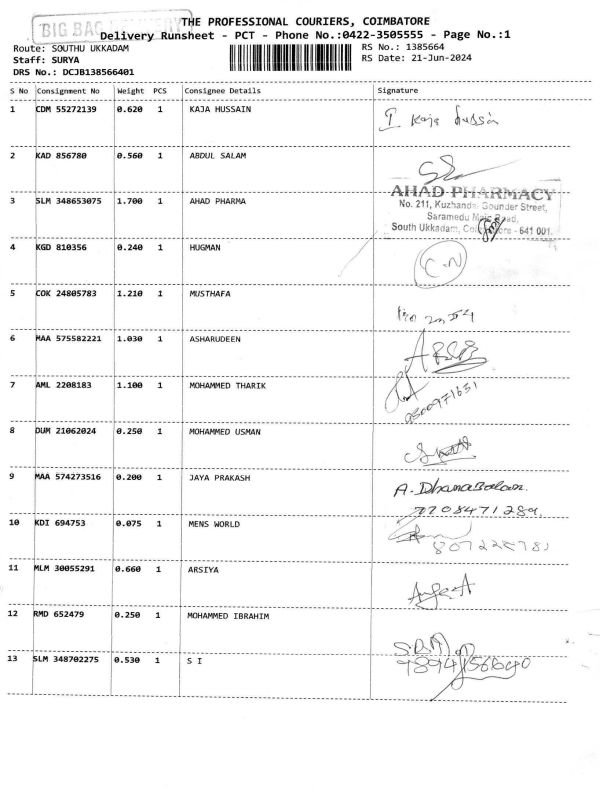 BIG BAG DELIVERY
THE PROFESSIONAL COURIERS, COIMBATORE
Delivery Runsheet - PCT - Phone No.:0422-3505555 - Page No.:1
Route: SOUTHU UKKADAM
RS No.: 1385664
Staff: SURYA
RS Date: 21-Jun-2024
DRS No.: DCJB138566401
S No Consignment No Weight PCS Consignee Details Signature
1 CDM 55272139 0.620 1 KAJA HUSSAIN
Kaja Hussain
2 KAD 856780 0.560 1 ABDUL SALAM
3 SLM 348653075 1.700 1 AHAD PHARMA
AHAD PHARMACY
No. 211, Kuzhandai Gounder Street,
Saramedu Main Road,
South Ukkadam, Coimbatore - 641 001.
4 KGD 810356 0.240 1 HUGMAN
C.N
5 COK 24805783 1.210 1 MUSTHAFA
6 MAA 575582221 1.030 1 ASHARUDEEN
7 AML 2208183 1.100 1 MOHAMMED THARIK
8 DUM 21062024 0.250 1 MOHAMMED USMAN
9 MAA 574273516 0.200 1 JAYA PRAKASH
A. Dhanabalan.
7708471289.
10 KDI 694753 0.075 1 MENS WORLD
11 MLM 30055291 0.660 1 ARSIYA
12 RMD 652479 0.250 1 MOHAMMED IBRAHIM
13 SLM 348702275 0.530 1 S I